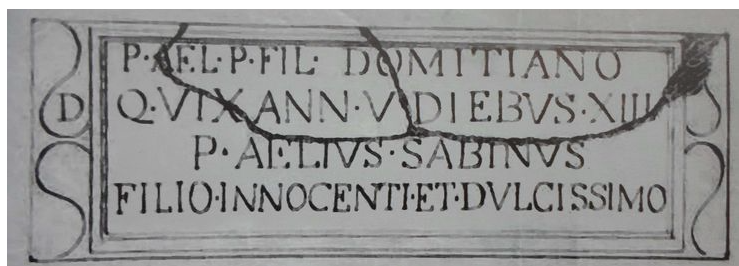 P·AEL·P·FIL· DOMITIANO
D Q·VIX ANN·V DIEBVS·XIII
P·AELIVS·SABINVS
FILIO·INNOCENTI·ET·DVLCISSIMO